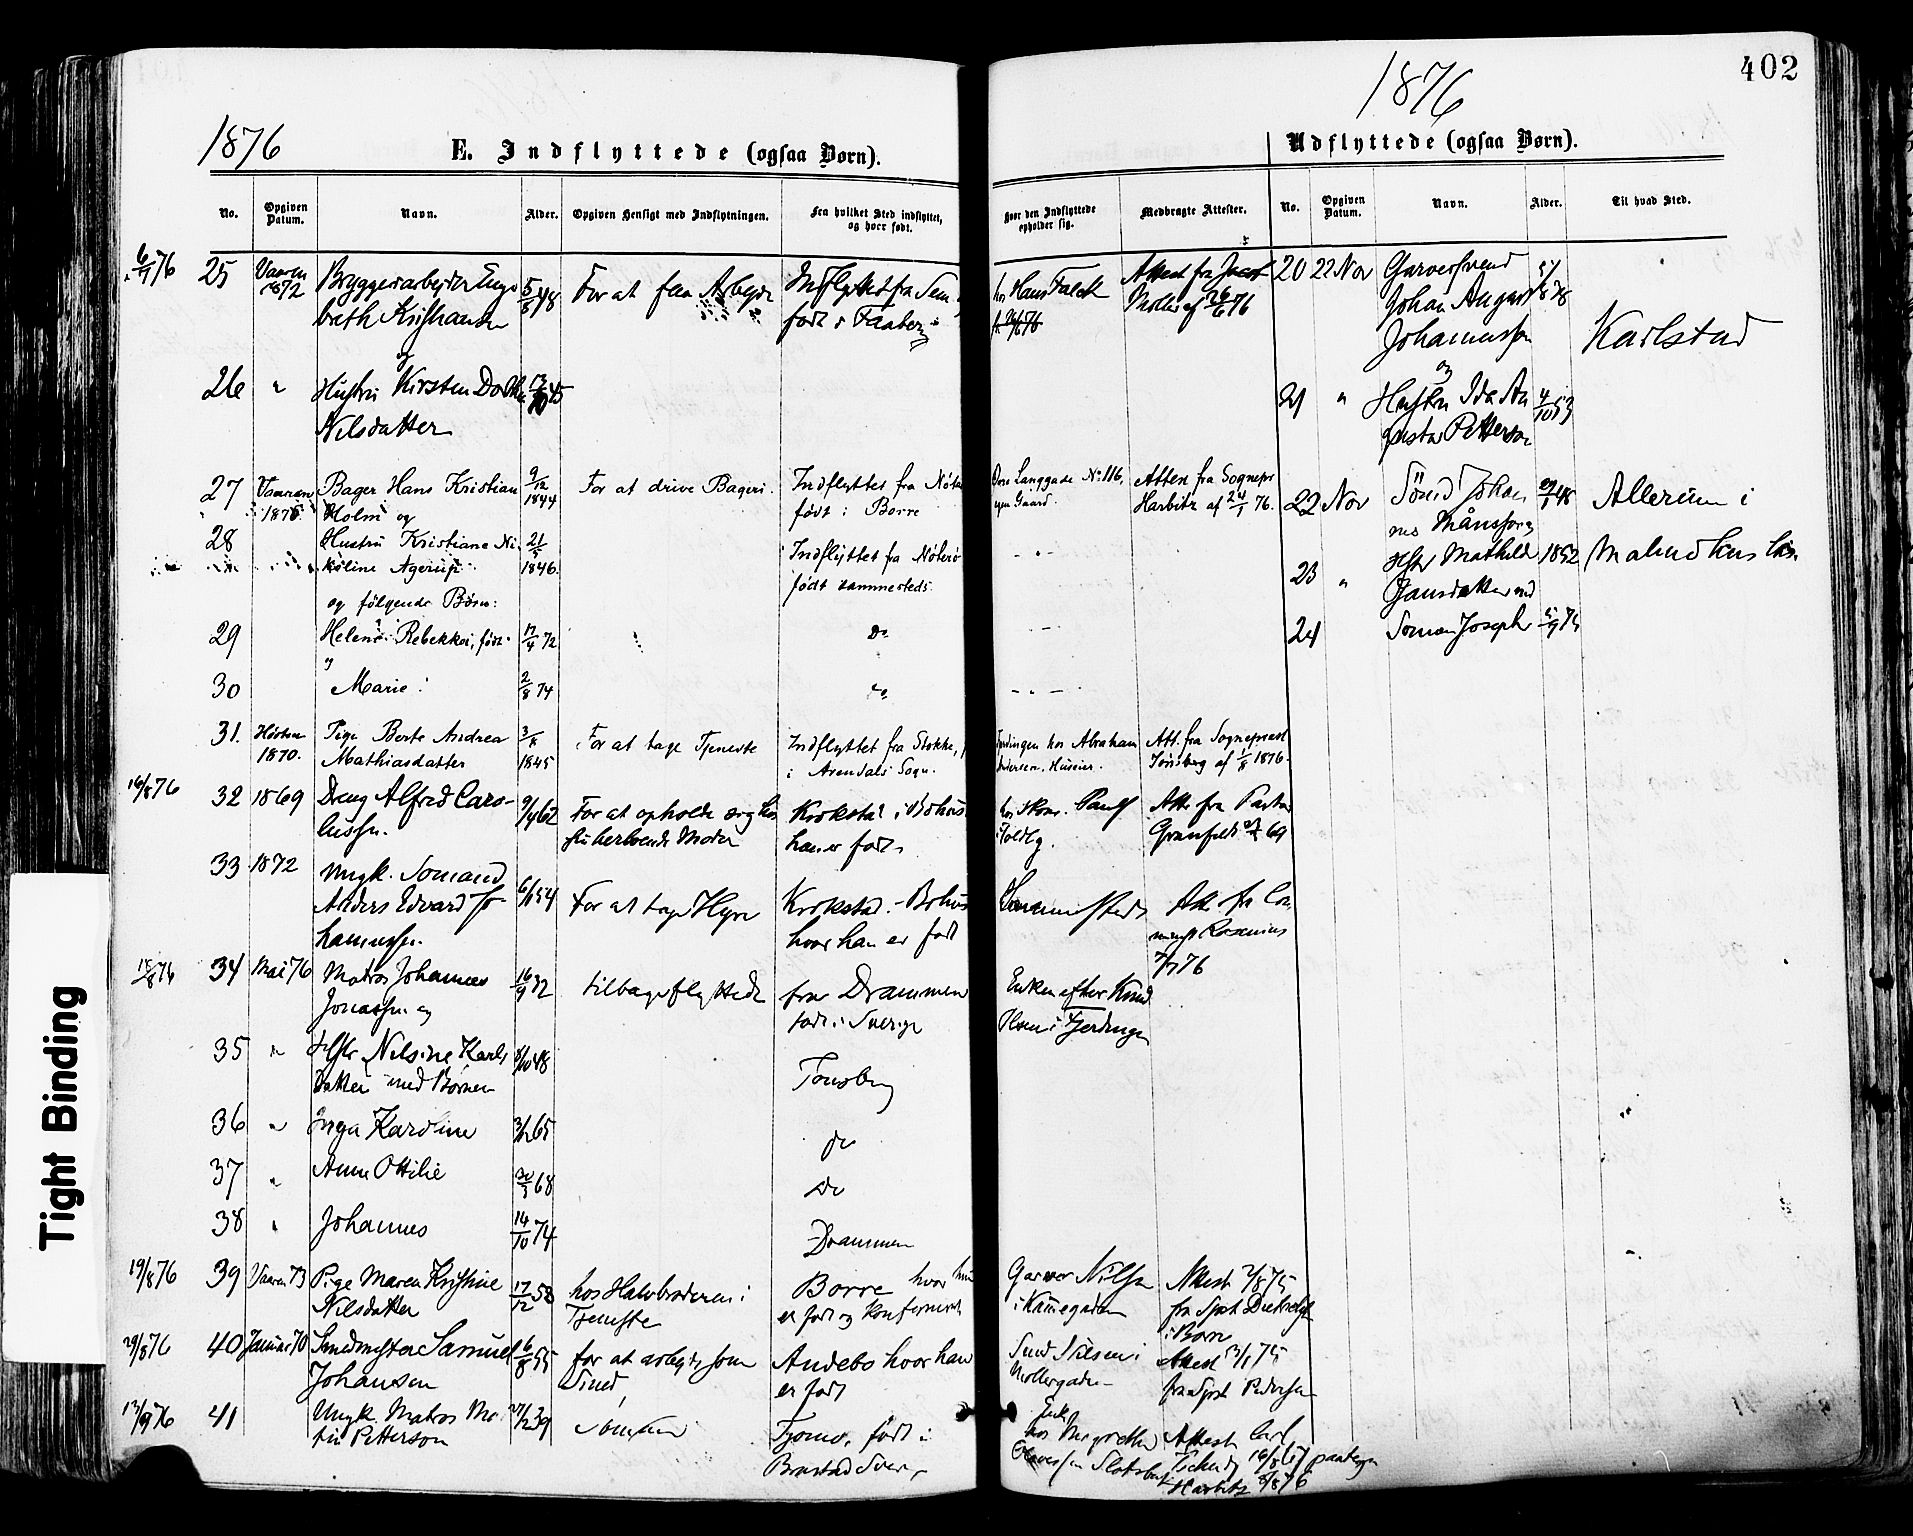 402
1876
1876
E. Indflyttede (ogsaa Børn).
Udflyttede (ogsaa Børn).
No.
Opgiven Datum.
Navn.
Alder.
Opgiven Hensigt med Indflytningen.
Fra hvilket Sted indflyttet,
og hvor født.
Hvor den Indflyttede
opholder sig.
Medbragte Attester.
No.
Opgiven Datum.
Navn.
Alder.
Til hvad Sted.
25 Vaaren 1872 Bryggeriarbejder Enge
breth Kristiansen 5/8 48 For at faa Arbejde Indflyttet fra Sem
født i Faaberg
hos Hans Falck Attest fra Jacob
Møller af 26/6 76
26 " Hustru Kirsten Dorthea
Nilsdatter
27 Vaaren 1875 Bager Hans Kristian 9/12 1844 For at drive Bageri. Indflyttet fra Nøter
Holm og født i Borre
Øvre Langgade No 116, Attest fra Sognepr
egen Gaard. Harbitz af 24/1 76.
28 Hustru Kristiane Ni 21/5 1846. Indflyttet fra Nøterø
koline Agerup født sammesteds.
og følgende Børn:
29 Helene Rebekka, født 17/4 72 Do
og
30 Marie 2/8 74 Do
31. Høsten 1870. Pige Berte Andrea 3/8 1845 For at tage Tjeneste Indflyttet fra Stokke,
Mathiasdatter i Arendals Sogn.
Fjerdingen hos Abraham Att. fra Sognepræst
Andersen, Huseier. Tønsberg af 1/8 1876.
16/8 76 32 1869 Dreng Alfred Caro-
lussen. 9/4 62 For at opholde sig hos
sin herboende Moder Krokstad i Bohus
han er født
Att. fra Pastor
Grønfeldt 69
33 1872 Ungk. Sømand
Anders Edvard Jo-
hannessen. 6/11 54 For at tage Hyre Krokstad - Bohus
hvor han er født
Sammesteds 7/7 76
34 Mai 76 Matros Johannes
Jonassen og 16/9 32 tilbageflyttede fra Drammen
født i Sverige
Enken efter Knud
Olsen i Fjerdingen
35 " Hstr Nilsine Karls
datter med Børnene 8/10 48 Tønsberg
36 " Inga Karoline 3/12 65 do
37 " Anne Ottilie 30/3 68 do
38 " Johannes 14/10 74 Drammen
19/8 76 39 Vaaren 73 Pige Maren Kristine
Nilsdatter 17/12 58 hos Halvbroderen i
Tjeneste Borre hvor hun
er født og konfirmeret
Garver Nilsen
i Kammegaden Attest 7/8 75
i Borre
29/8 76 40 Januar 70 Smedmester Samuel
Johansen 6/8 55 for at arbejde som
Smed Andebo hvor han
er født
Smed Nilsen i
Møllergaden Attest 13/1 75
fra Spst Pedersen
12/9 76 41 Ungk. Matros Ma
tin Petterson 27/12 39 Sømand Tjømø, født i
Brastad Sver
Attest Carl
Harbitz 8/8 76
20 22 Nov Garversvend
Johan August
Johannessen
og Karlstad
21 " Hustru Ida Au
gusta Petterson 4/10 53
22 Nov Sömd Johan
nes Månsson 48 Allerum i
23 " Hstr Mathilde 1852 Malmöhus Län
Jönsdatter med
24 Sønnen Joseph
Tight Binding